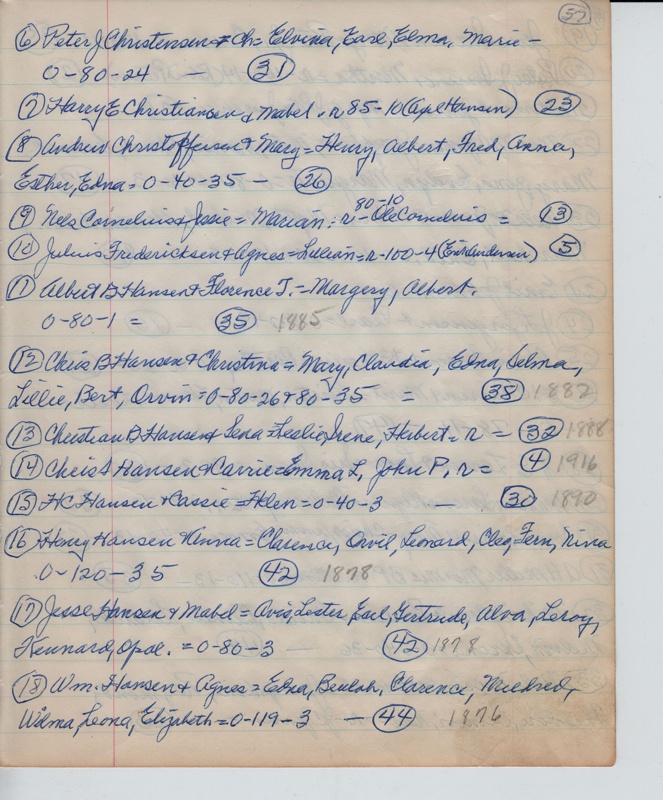 57
(6) Peter J Christensen + Ch= Elvina, Earl, Elma, Marie -
0-80-24 - (31)
(7) Harry E Christiansen & Mabel. r 85-10 (Axel Hansen) (23)
(8) Andrew Christoffersen & Mary = Henry, Albert, Fred, Anna,
Esther, Edna = 0-40-35 - (26)
(9) Nels Cornelius & Jessie = Marian: r 80-10 Ole Cornelius = (13)
(10) Julius Fredericksen + Agnes = Lillian = r-100-4 (Erik Andersen) (5)
(11) Albert B Hansen + Florence T. = Margery, Albert.
0-80-1 = (35) 1885
(12) Chris B Hansen & Christina = Mary, Claudia, Edna, Selma,
Lillie, Bert, Orvin = 0-80-26 & 80-35 = (38) 1882
(13) Christian B Hansen & Lena = Leslie, Irene, Hibert = r = (32) 1888
(14) Chris Hansen & Carrie = Emma L, John P, r = (4) 1916
(15) HC Hansen & Cassie = Hklen = 0-40-3 - (30) 1890
(16) Henry Hansen & Anna = Clarence, Orvil, Leonard, Cleo, Fern, Nina
0-120-35 (42) 1878
(17) Jesse Hansen & Mabel = Ovis, Lester, Earl, Gertrude, Alva, Leroy,
Kennard, Opal. = 0-80-3 (42) 1878
(18) Wm. Hansen & Agnes = Edna, Beulah, Clarence, Mildred,
Wilma, Leona, Elizabeth = 0-119-3 - (44) 1876